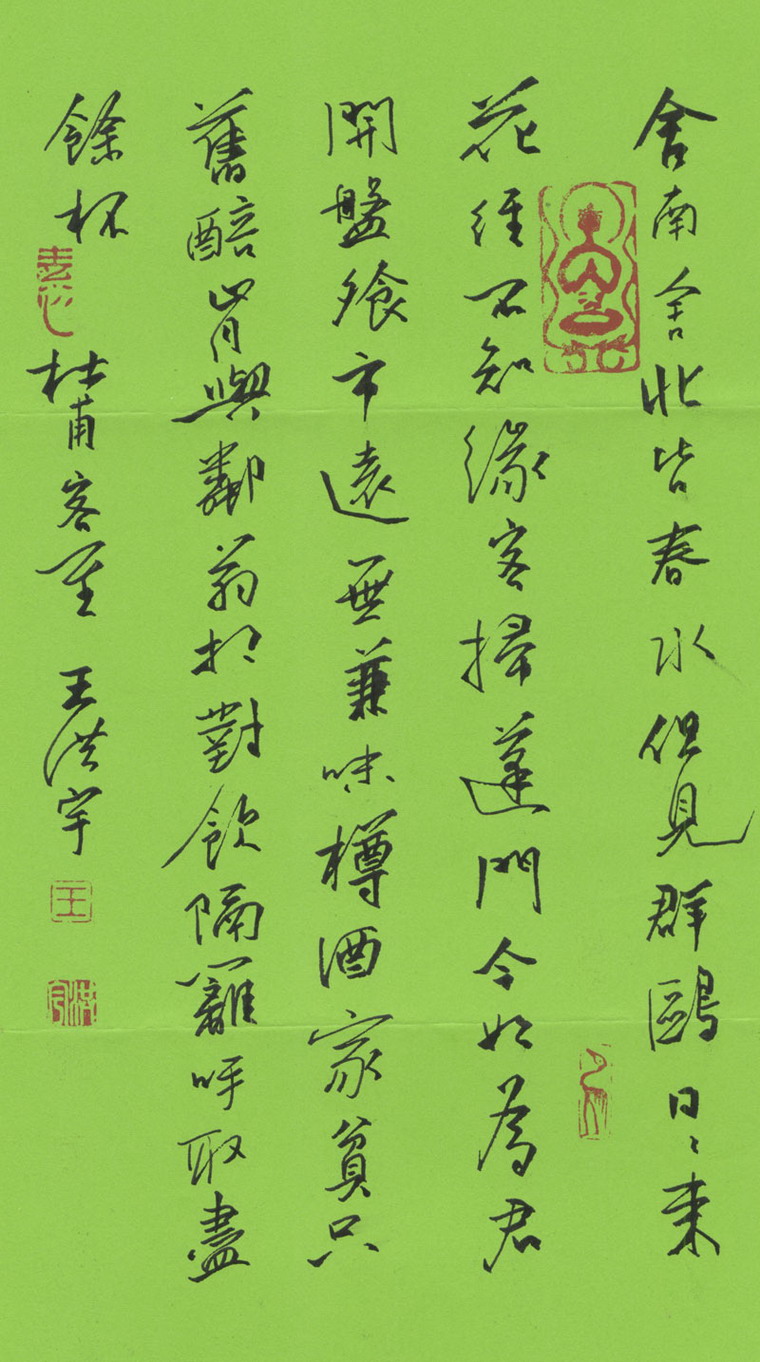 舍南舍北皆春水但見群鷗日々來
花徑不知緣客掃蓬門今始為君
開盤飧市遠無兼味樽酒家貧只
舊醅肯與鄰翁相對飲隔籬呼取盡
餘杯
杜甫客至 王洪宇
王